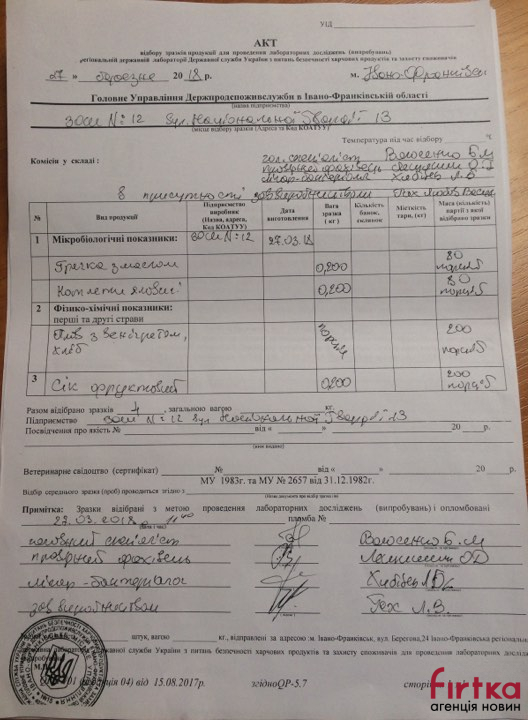 УІД
АКТ
відбору зразків продукції для проведення лабораторних досліджень (випробувань)
регіональній державній лабораторії Державної служби України з питань безпечності харчових продуктів та захисту споживачів
« 27 » березня 2018 р. м. Івано-Франківськ
Головне Управління Держпродспоживслужби в Івано-Франківській області
(назва підприємства)
ЗОСШ № 12 вул. Національної Гвардії 13
(місце відбору зразка (Адреса та Код КОАТУУ)
Температура під час відбору °С
Комісії у складі : гол. спеціаліст Б.М
провідний фахівець О.Д
лікар-бактеріолог Л.В.
в присутності зав виробництвом
№ Вид продукції Підприємство-виробник (Назва, адреса, Код КОАТУУ) Дата виготовлення Вага зразка ( кг) Кількість банок, склянок Місткість тари, (кг) Маса (кількість) партії з якої відібрано зразки
1 Мікробіологічні показники: ЗОСШ № 12 27.03.18
Гречка з маслом 0,200 80 порцій
Котлети ялович 0,200 80 порцій
2 Фізико-хімічні показники:
перші та другі страви
з венігретом, порція 200
хліб порцій
3 Сік фруктовий 0,200 200 порцій
Разом відібрано зразків 4, загальною вагою кг.
Підприємство ЗОСШ № 12 вул Національної Гвардії 13
Посвідчення про якість № від « » 20 р.
(ким видано)
Ветеринарне свідоцтво (сертифікат) № від « » 20 р.
МУ 1983г. та МУ № 2657 від 31.12.1982г.
Відбір середнього зразка (проб) проводиться згідно з
Примітка: Зразки відібрані з метою проведення лабораторних досліджень (випробувань) і опломбовані
27.03.2018 11 40 пломба №
(дата і час)
головний спеціаліст Б.М
провідний фахівець О.Д
лікар-бактеріолог
зав виробництвом Пех Л.В.
штук, вагою кг., відправлені за адресою: м. Івано-Франківськ, вул. Берегова,24 Івано-Франківська регіональна
державної служби України з питань безпечності харчових продуктів та захисту споживачів для проведення лабораторних дослідж
М.П.
04) від 15.08.2017р. згідноQP-5.7
firtka
агенція новин